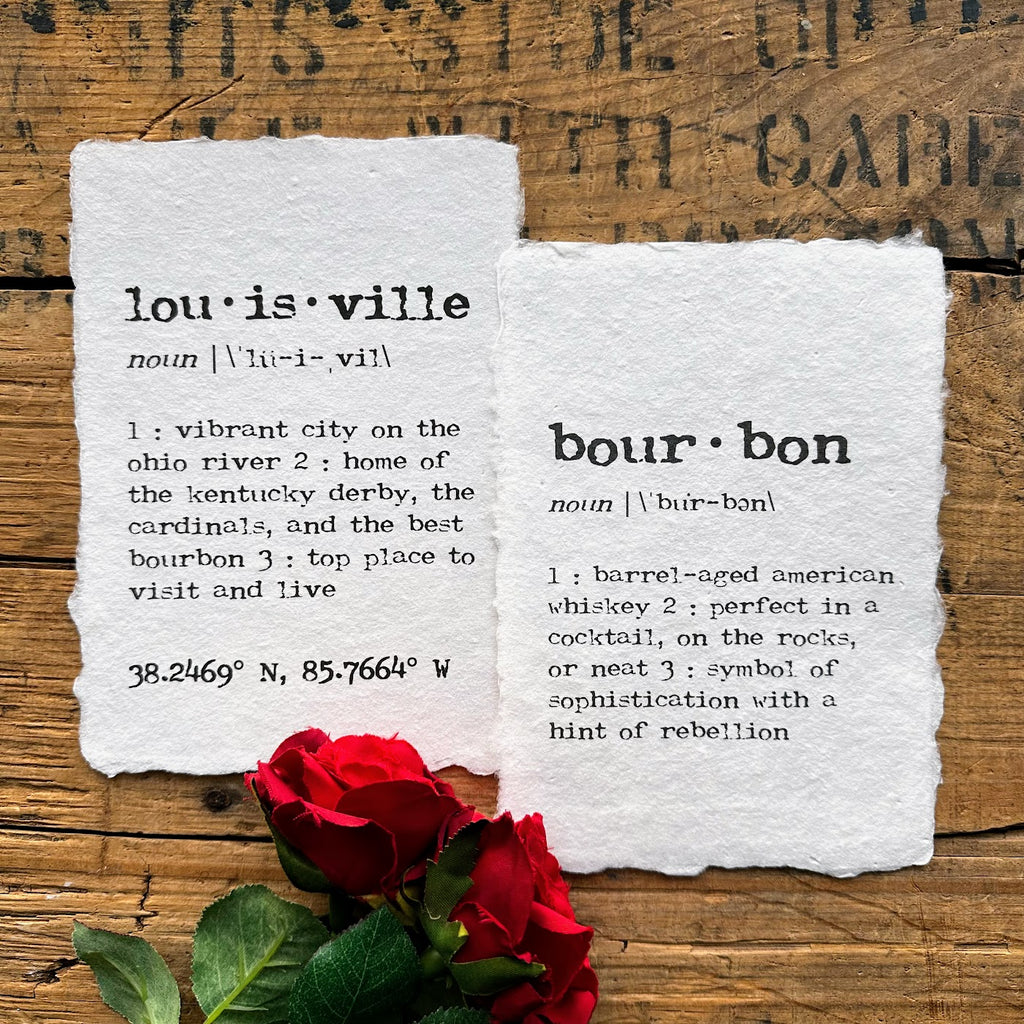 WITH CARE
lou·is·ville
noun | \ˈlü-i-ˌvil\
1 : vibrant city on the
ohio river 2 : home of
the kentucky derby, the
cardinals, and the best
bourbon 3 : top place to
visit and live
38.2469° N, 85.7664° W
bour·bon
noun | \ˈbu̇r-bən\
1 : barrel-aged american
whiskey 2 : perfect in a
cocktail, on the rocks,
or neat 3 : symbol of
sophistication with a
hint of rebellion